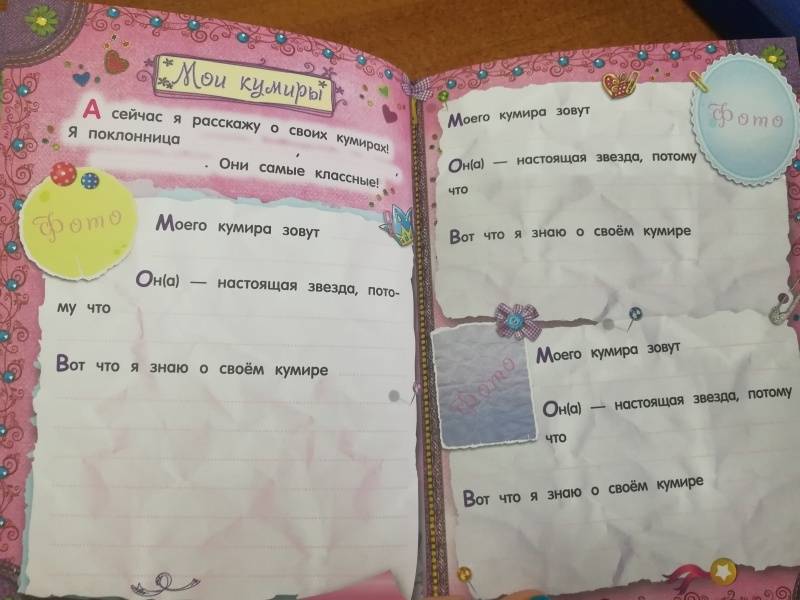 Мои кумиры
А сейчас я расскажу о своих кумирах!
Я поклонница ,
,
. Они самые классные!
Фото
Моего кумира зовут
Он(а) — настоящая звезда, пото-
му что
Вот что я знаю о своём кумире
Моего кумира зовут
Фото
Он(а) — настоящая звезда, потому
что
Вот что я знаю о своём кумире
Фото
Моего кумира зовут
Он(а) — настоящая звезда, потому
что
Вот что я знаю о своём кумире